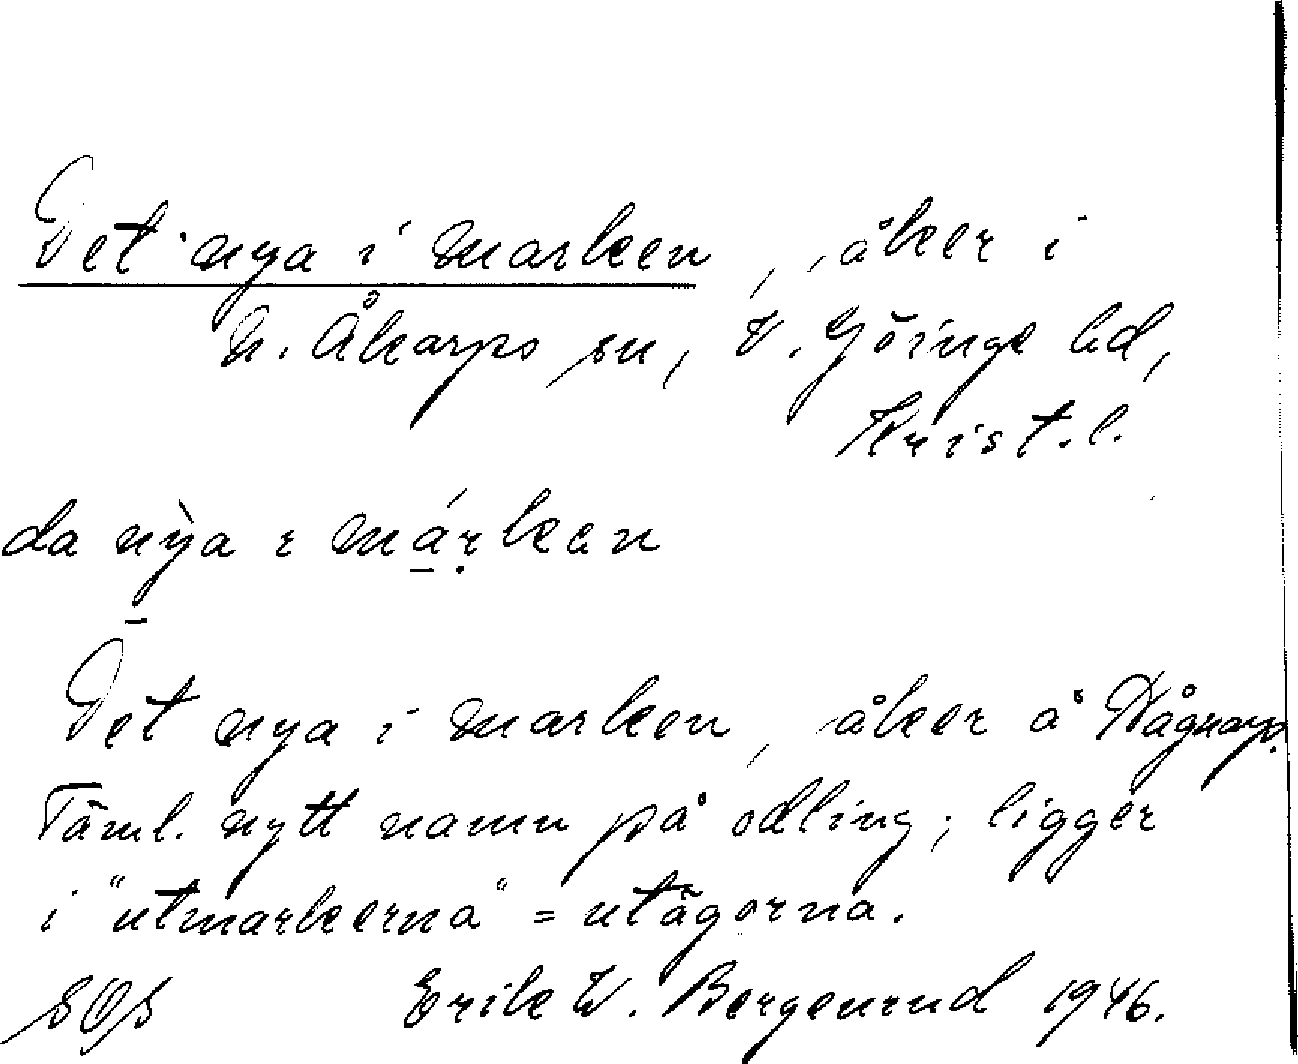 Det nya i marken, åker i
N. Åkarps sn, V. Göinge hd,
Krist. l.
da nỳa ɪ márkan
Det nya i marken, åker å Vågnarp.
Täml. nytt namn på odling; ligger
i "utmarkerna" = utägorna.
SOS Erik W. Bergenrud 1946.